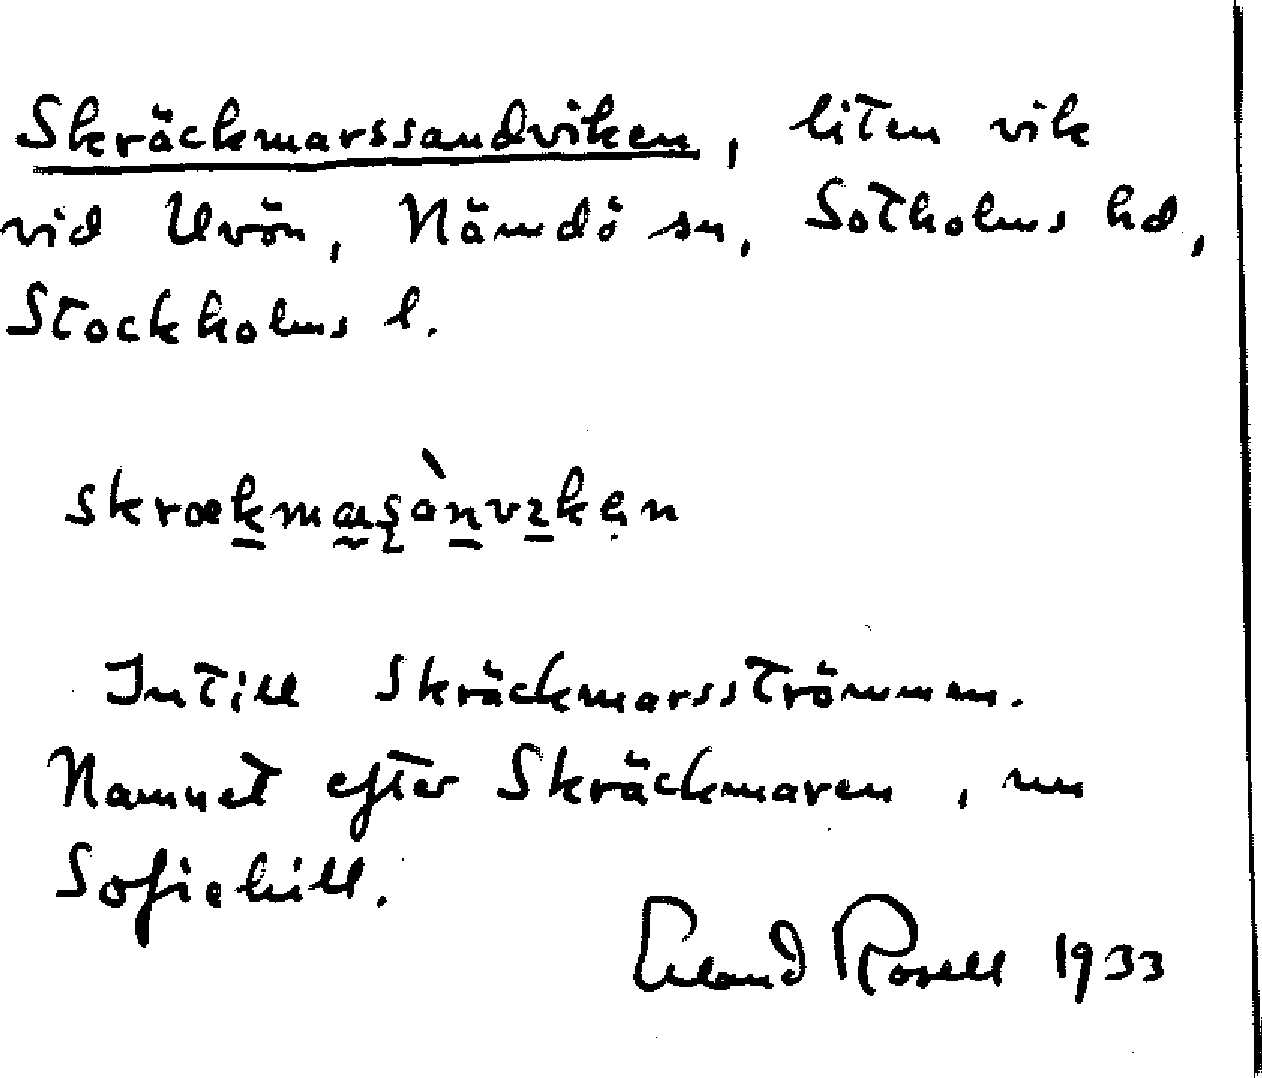 Skräckmarssandviken, liten vik
vid Uvön, Nämdö sn, Sotholms hd,
Stockholms l.
Intill Skräckmarsströmmen.
Namnet efter Skräckmaren, nu
Sofiehill.
Erland Rosell 1933